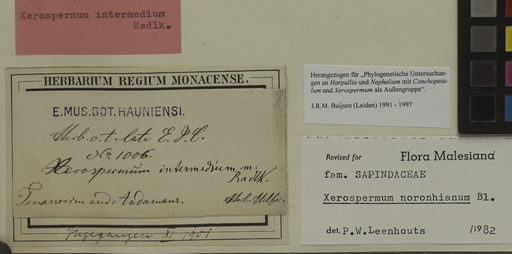 Xerospermum intermedium
Radlk.
HERBARIUM REGIUM MONACENSE.
E. MUS. BOT. HAUNIENSI.
Herb. o. t. late E. I. C.
No. 1006.
Xerospermum intermedium m.
Radlk.
Tenasserim and Andamans.
Herb. Helfer.
Eingegangen XI 1901
Herangezogen für „Phylogenetische Untersuchun-
gen an Harpullia und Nephelium mit Conchopeta-
lum und Xerospermum als Außengruppe“.
J.R.M. Buijsen (Leiden) 1991 - 1997
Revised for Flora Malesiana
fam. SAPINDACEAE
Xerospermum noronhianum Bl.
det. P.W. Leenhouts /1982